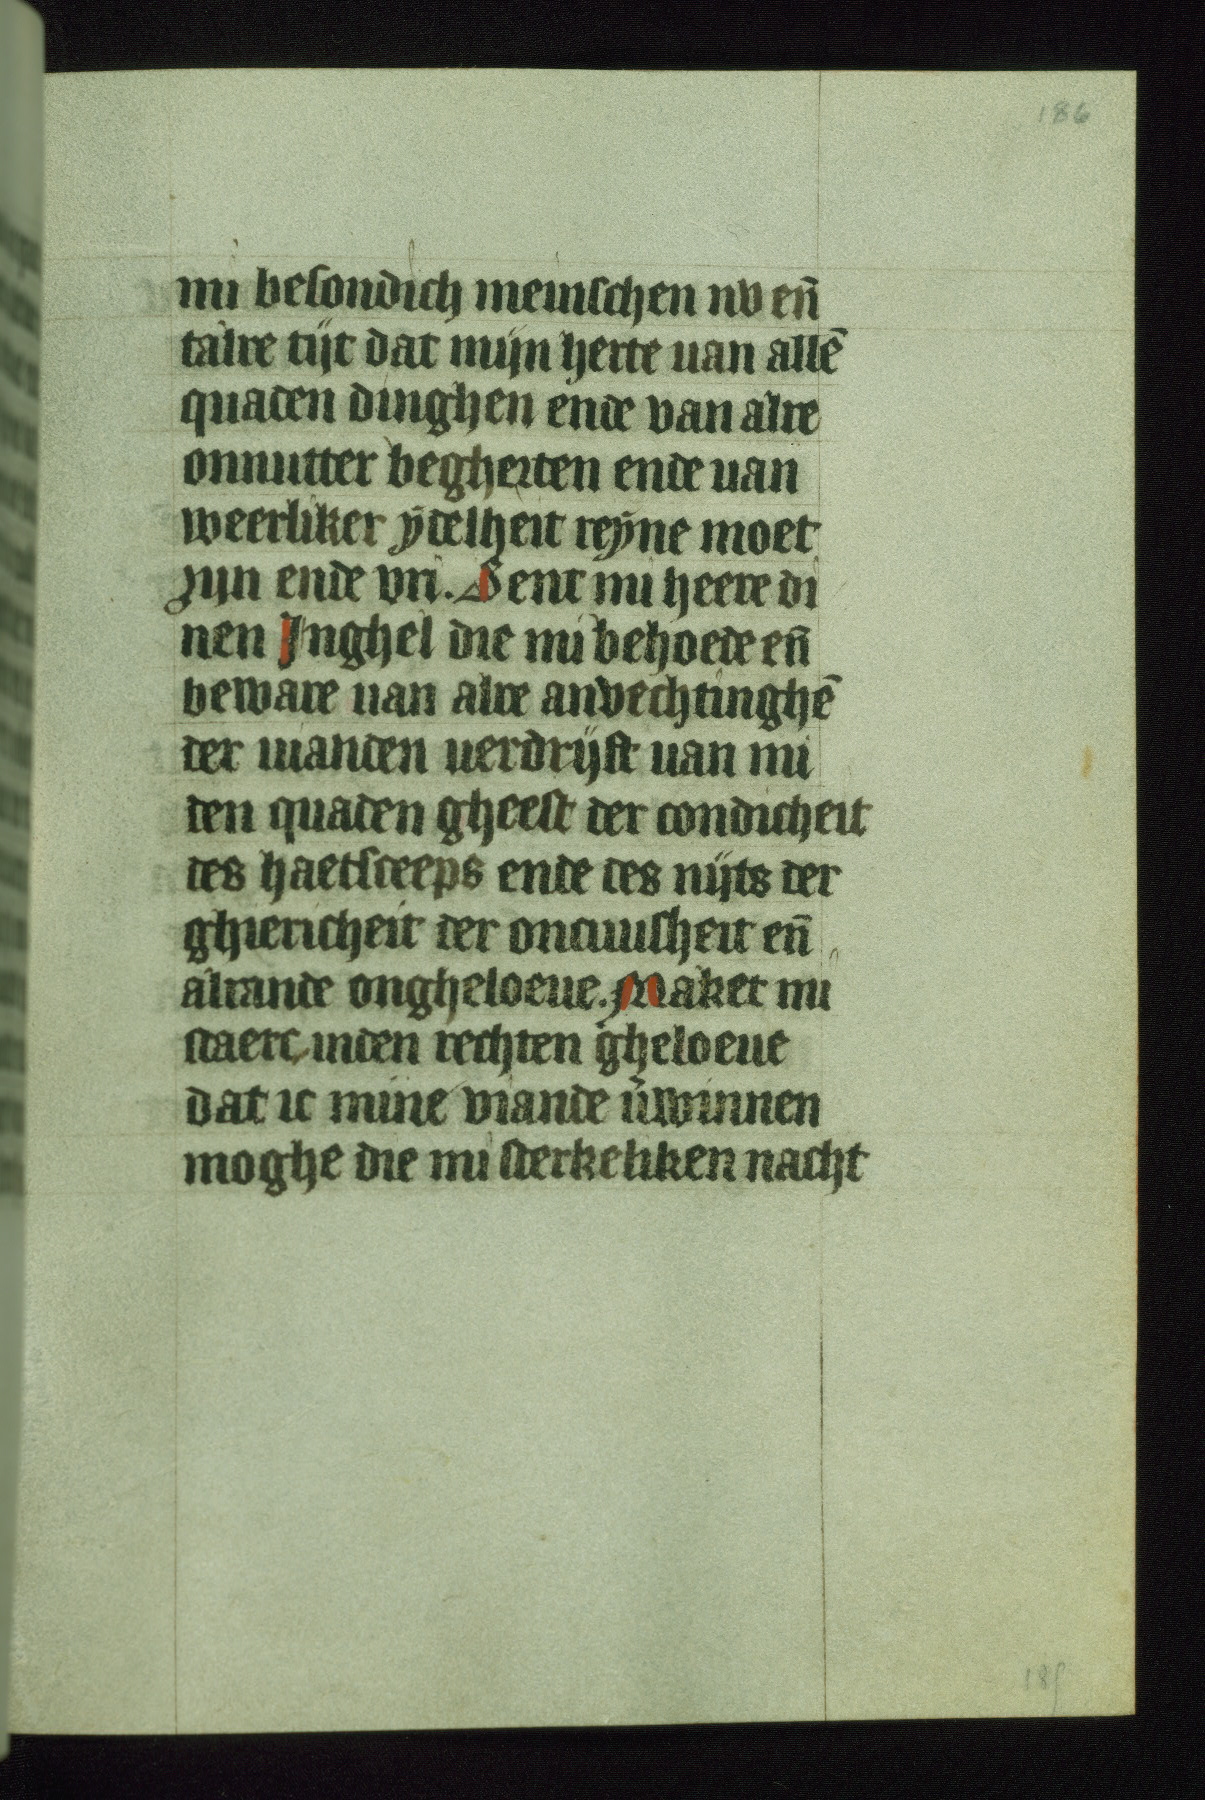 186
mi besondich meinschen nv en̄
talre tijt dat mijn herte uan allē
quaden dinghen ende van alre
onnutter begherten ende uan
weerliker ydelheit reyne moet
zijn ende vri. Sent mi heere di
nen Inghel die mi behoede en̄
beware uan alre anvechtinghē
der uianden uerdrijft uan mi
den quaden gheest der condicheit
des haetsceeps ende des nijts der
ghiericheit der oncuusheit en̄
alrande ongheloeue. Maket mi
staerc inden rechten gheloeue
dat ic mine viande ūwinnen
moghe die mi sterkeliken nacht
185